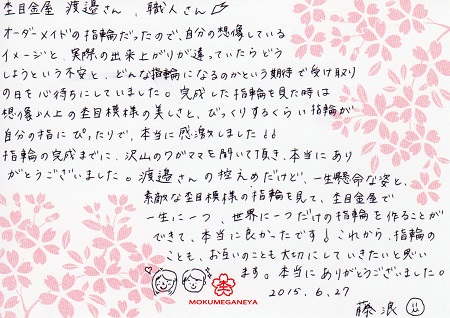 杢目金屋 渡邉さん、職人さんへ
オーダーメイドの指輪だったので、自分の想像している
イメージと、実際の出来上がりが違っていたらどう
しようという不安と、どんな指輪になるのかという期待で受け取り
の日を心待ちにしていました。完成した指輪を見た時は
想像以上の杢目模様の美しさと、びっくりするくらい指輪が
自分の指にぴったりで、本当に感激しました!!
指輪の完成までに、沢山のワガママを聞いて頂き、本当にあり
がとうございました。渡邉さんの控えめだけど、一生懸命な姿と、
素敵な杢目模様の指輪を見て、杢目金屋で
一生に一つ、世界に一つだけの指輪を作ることが
できて、本当に良かったです!これから、指輪の
ことも、お互いのことも大切にしていきたいと思い
ます。本当にありがとうございました。
MOKUMEGANEYA
2015.6.27
藤 浪